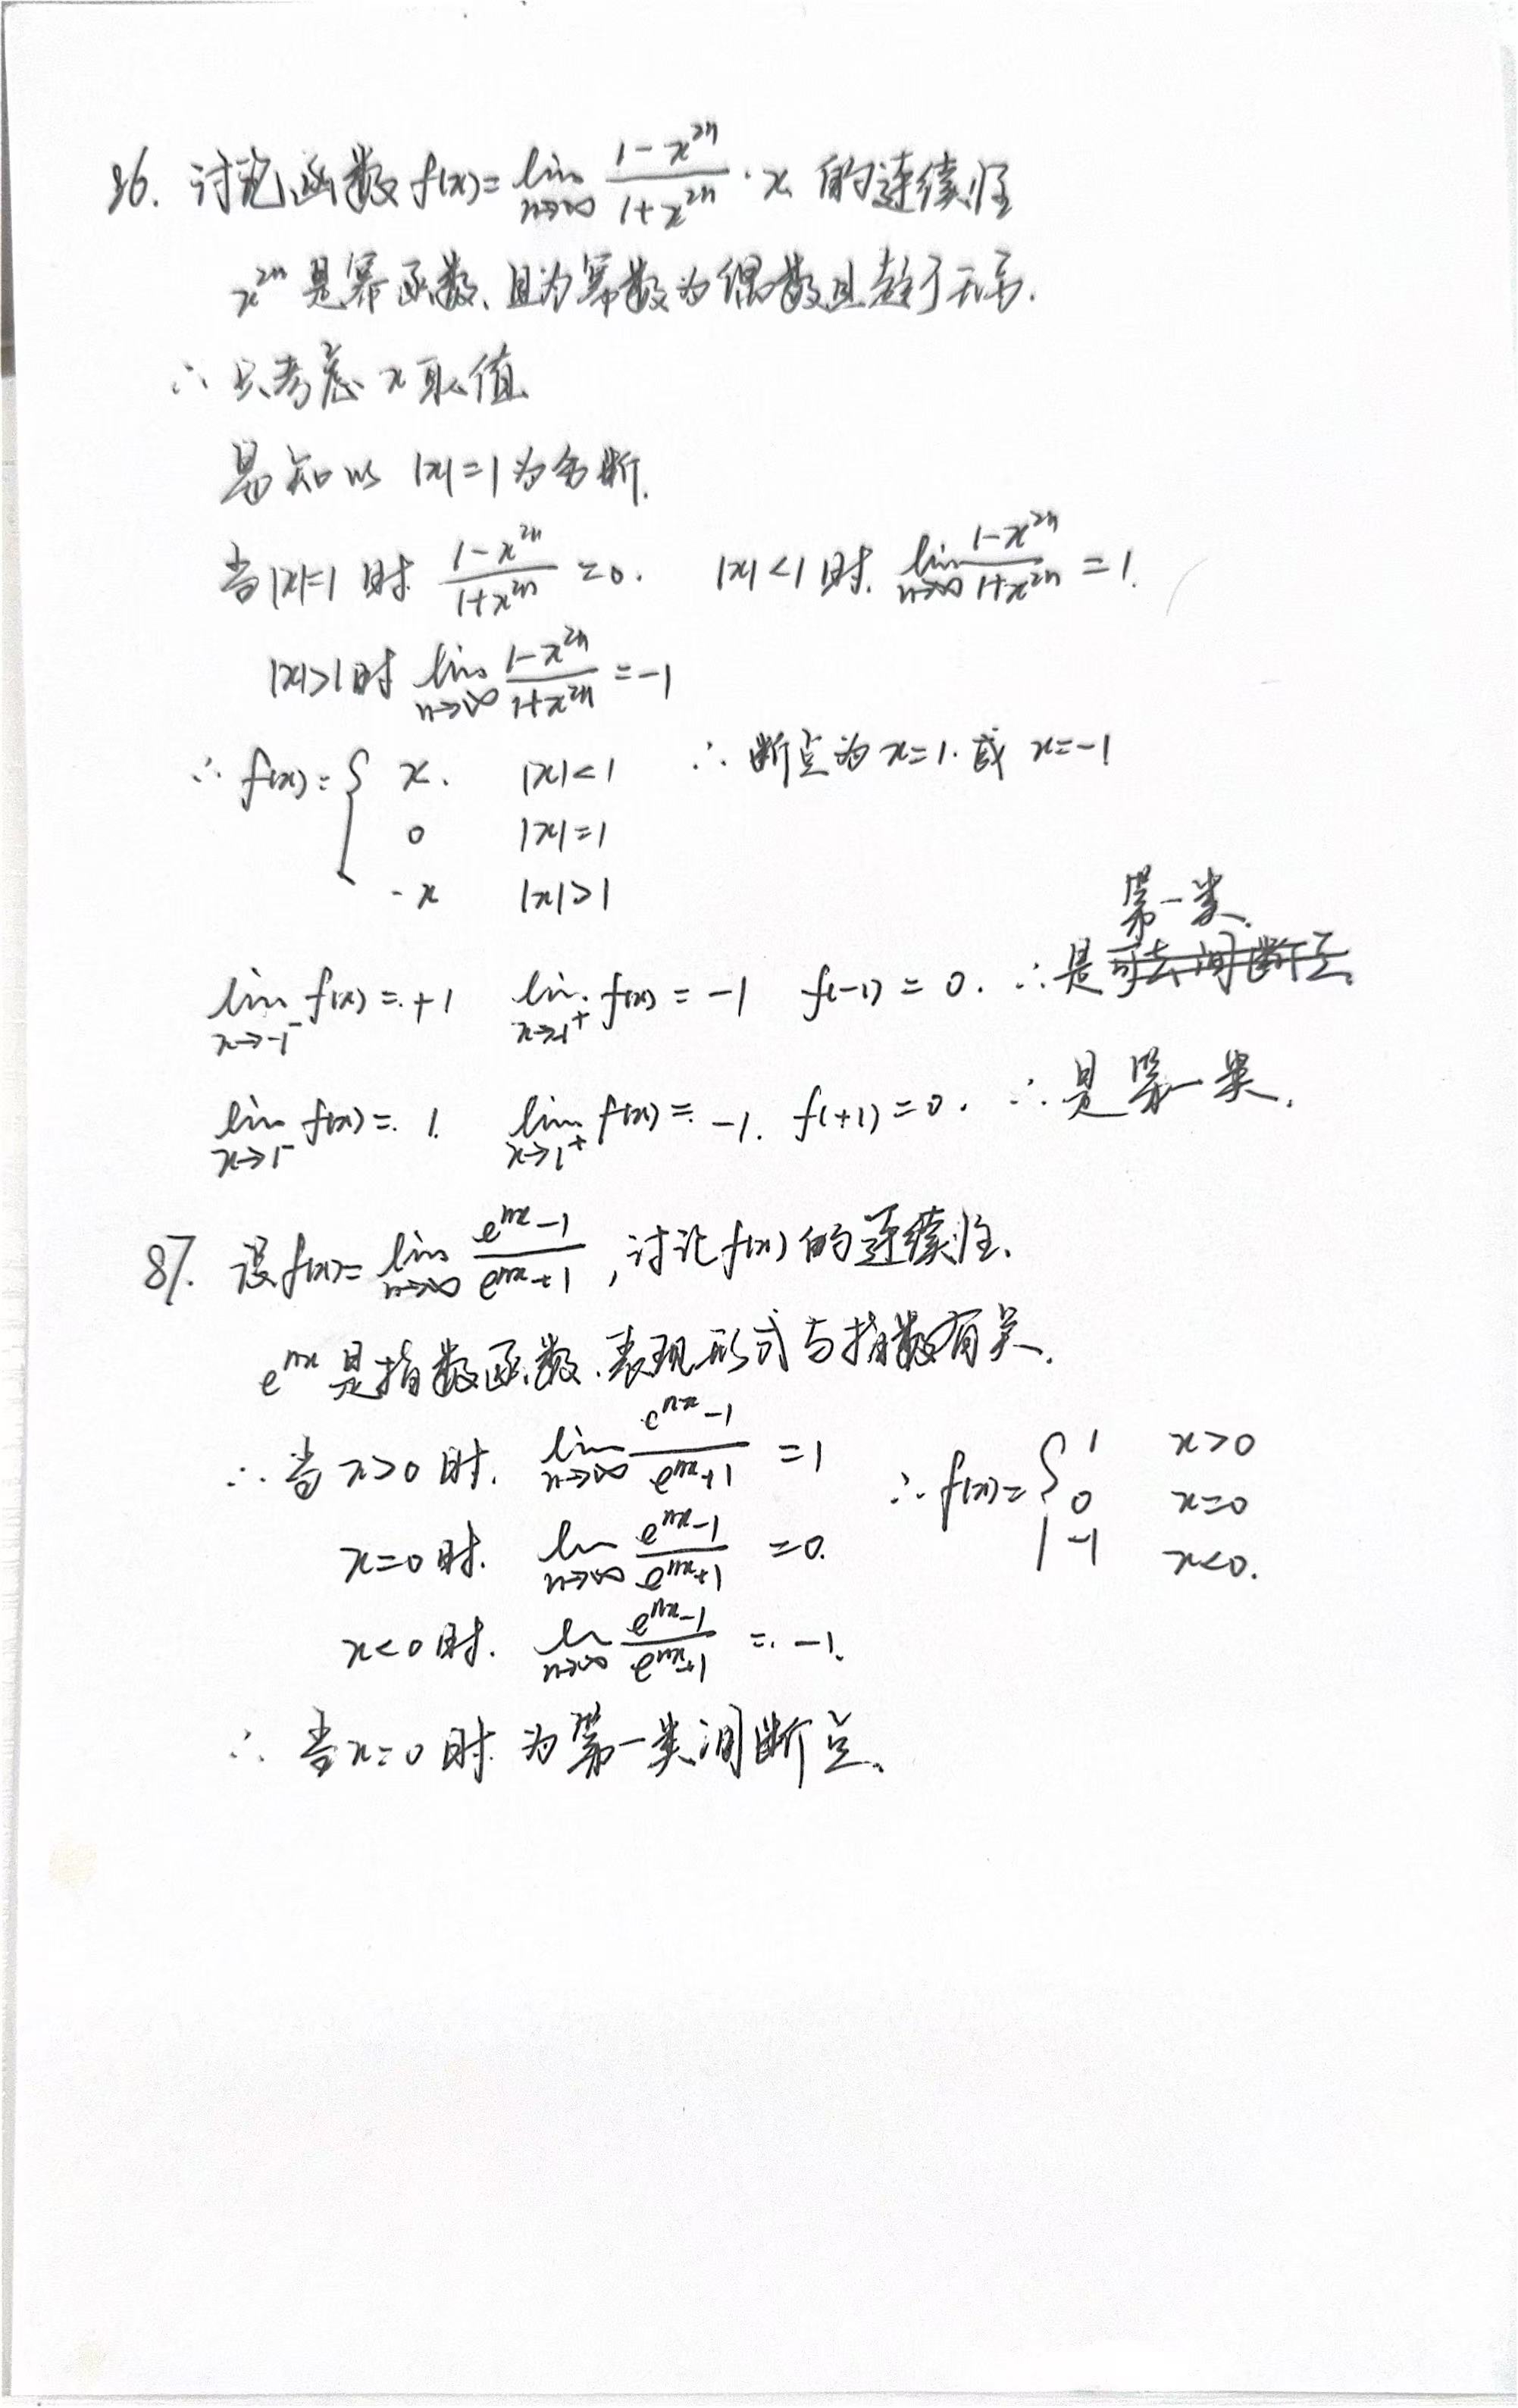 86. 讨论函数 f(x)=lim n→∞ (1-x^{2n})/(1+x^{2n}) · x 的连续性
x^{2n} 是幂函数、且为幂数为偶数且趋于无穷.
∴ 只考虑 x 取值
易知以 |x|=1 为分断.
当|x|=1 时 (1-x^{2n})/(1+x^{2n}) =0. |x|<1时. lim n→∞ (1-x^{2n})/(1+x^{2n}) =1.
|x|>1时 lim n→∞ (1-x^{2n})/(1+x^{2n}) =-1
∴ f(x)={ x. |x|<1 ∴ 断点为 x=1. 或 x=-1
0 |x|=1
-x |x|>1
第一类.
lim x→-1^- f(x)=+1 lim x→-1^+ f(x)=-1 f(-1)=0. ∴是可去间断点
lim x→1^- f(x)=1. lim x→1^+ f(x)=-1. f(+1)=0. ∴是第一类.
87. 设f(x)=lim n→∞ (e^{nx}-1)/(e^{nx}+1), 讨论f(x)的连续性.
e^{nx} 是指数函数.表现形式与指数有关.
∴ 当 x>0 时. lim n→∞ (e^{nx}-1)/(e^{nx}+1) =1 ∴ f(x)={ 1 x>0
0 x=0
-1 x<0.
x=0时. lim n→∞ (e^{nx}-1)/(e^{nx}+1) =0.
x<0时. lim n→∞ (e^{nx}-1)/(e^{nx}+1) =-1.
∴ 当x=0时 为第一类间断点.